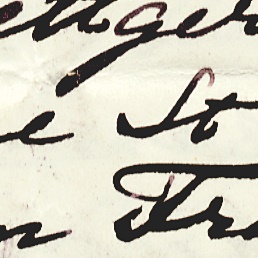 ettger
e St
n Fra